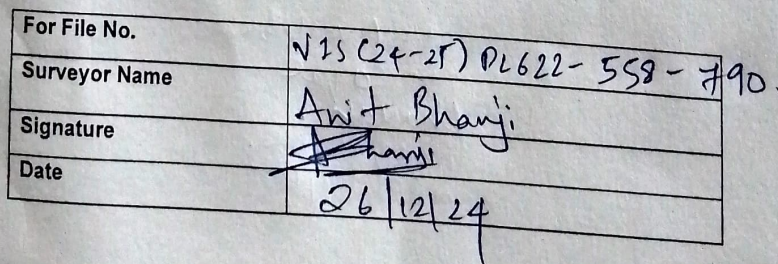 For File No. VIS (24-25) PL622-558-790
Surveyor Name Anit Bhanji
Signature Bhanji
Date 26/12/24